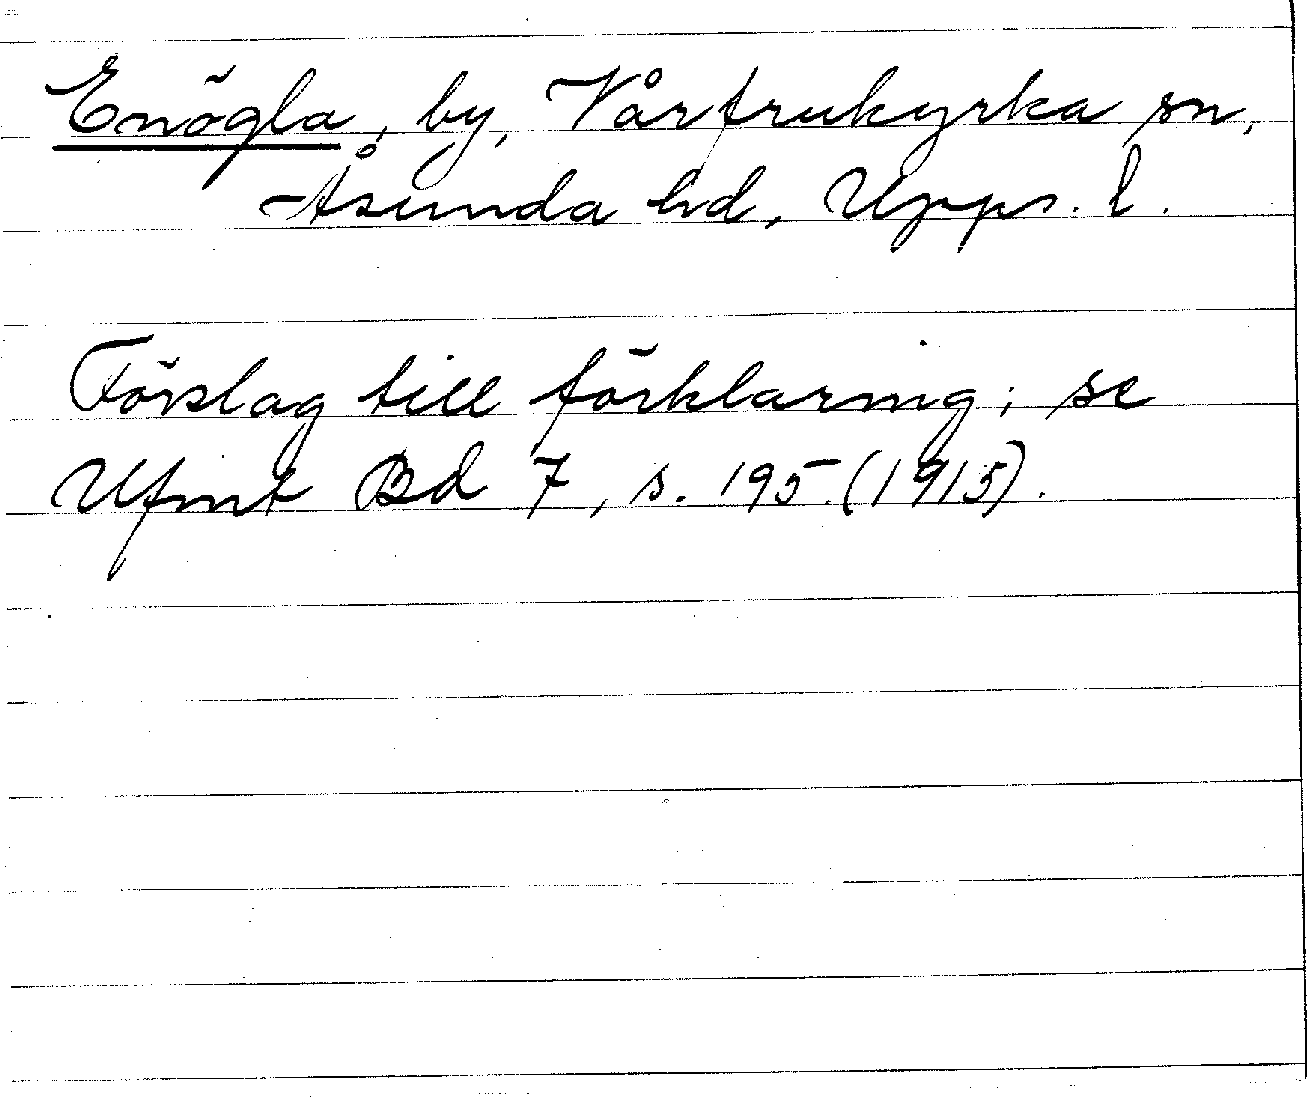 Enögla, by, Vårfrukyrka sn,
Åsunda hd, Upps. l.
Förslag till förklaring; se
Ufmt Bd 7, s. 195 (1915).